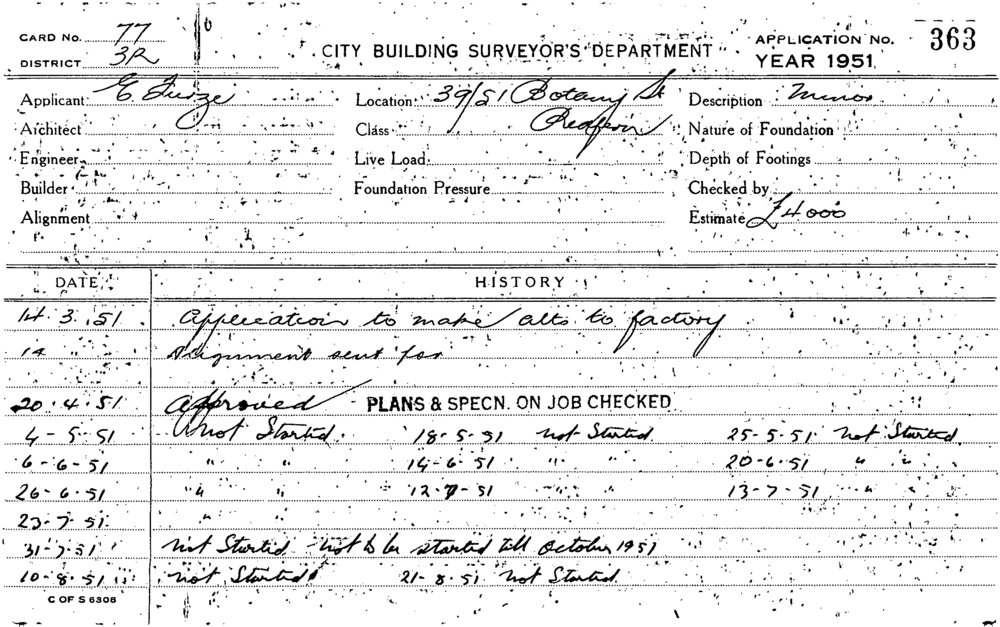 CARD No. 77
DISTRICT 3R
CITY BUILDING SURVEYOR'S DEPARTMENT
APPLICATION No. 363
YEAR 1951
Applicant E. Furze Location 39/51 Botany St Description Minor
Architect Class Redfern Nature of Foundation
Engineer Live Load Depth of Footings
Builder Foundation Pressure Checked by
Alignment Estimate £4000
DATE HISTORY
14.3.51 Application to make alts to factory
14 " " Alignment sent for
20.4.51 Approved PLANS & SPECN. ON JOB CHECKED
4-5-51 Not Started. 18-5-51 Not Started. 25-5-51 Not Started.
6-6-51 " " 14-6-51 " " 20-6-51 " "
26-6-51 " " 12-7-51 " " 13-7-51 " "
23-7-51 " "
31-7-51 Not Started. Not to be started till October 1951
10-8-51 Not Started 21-8-51 Not Started.
C OF S 6308